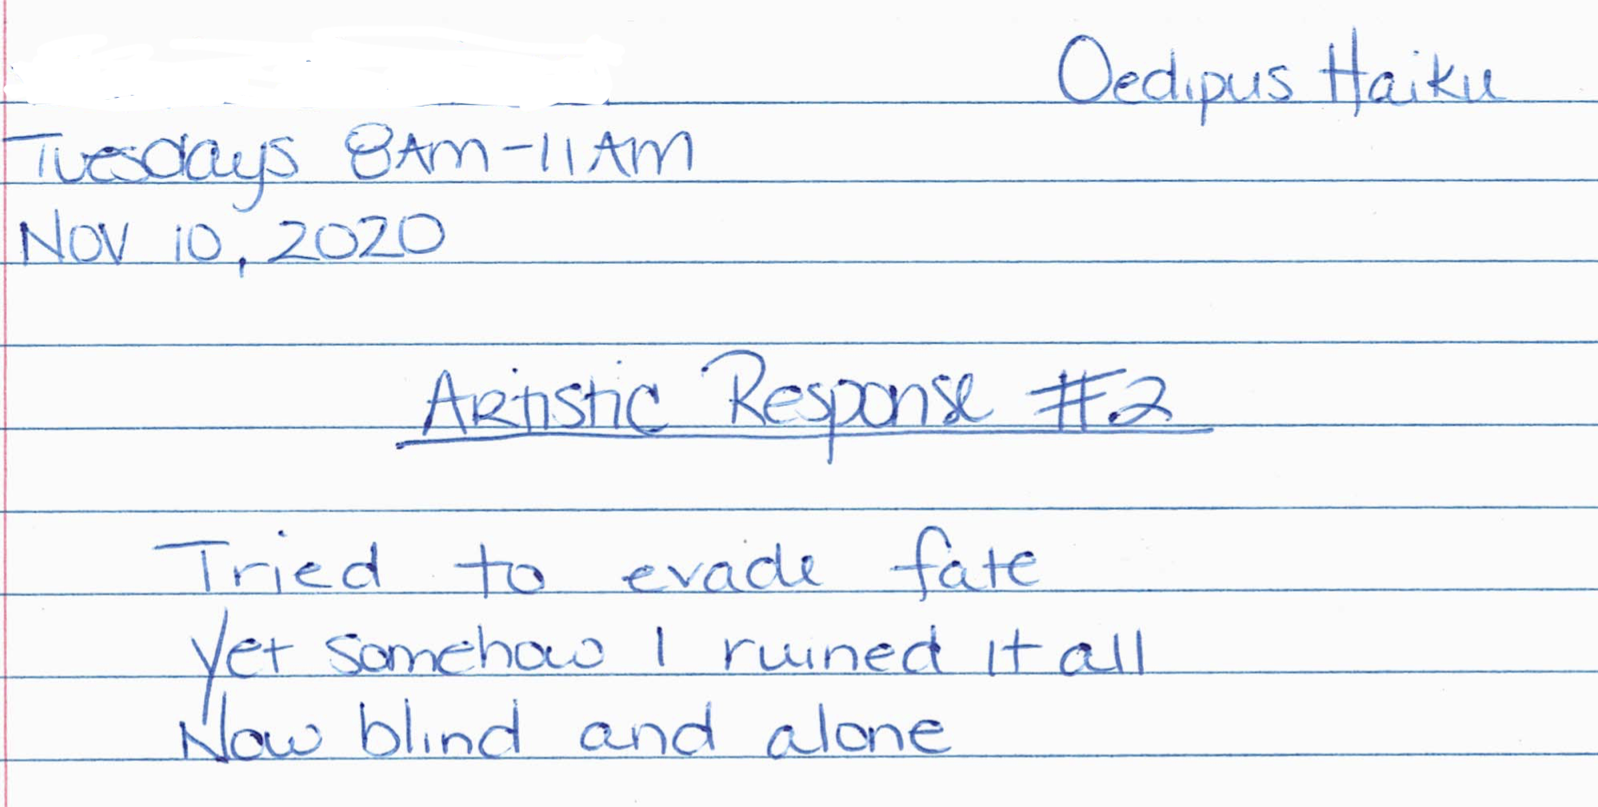 Oedipus Haiku
Tuesdays 8AM-11AM
Nov 10, 2020
Artistic Response #2
Tried to evade fate
Yet somehow I ruined it all
Now blind and alone